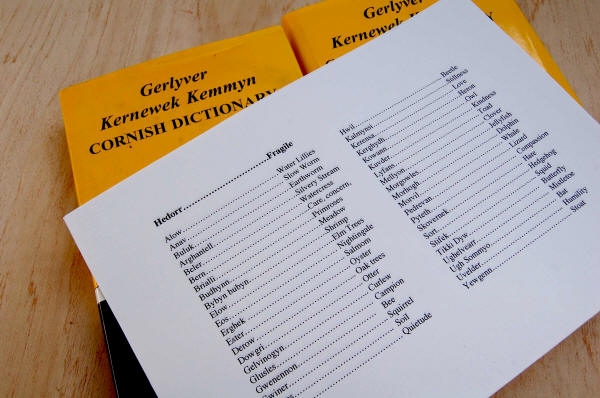 Gerlyver
Kernewek Kemmyn
CORNISH DICTIONARY
Gerlyver
Kernewek
Hedorr..........Fragile
Alow..........Water Lillies
Anav..........Slow Worm
Buluk..........Earthworm
Arghantell..........Silvery Stream
Beler..........Watercress
Bern..........Care, concern,
Brialli..........Primroses
Budhynn..........Meadow
Bybyn bubyn..........Shrimp
Elow..........Elm Trees
Eos..........Nightingale
Erghek..........Salmon
Ester..........Oyster
Derow..........Oak trees
Dowrgi..........Otter
Gelvinogyn..........Curlew
Glusles..........Campion
Gwenennon..........Bee
Gwiner..........Squirrel
Soil
Quietude
Hwil..........Beetle
Kalmynsi..........Stillness
Kerensa..........Love
Kerghydh..........Heron
Kowann..........Owl
Kuvder..........Kindness
Lyfans..........Toad
Mellyon..........Clover
Morgowles..........Jellyfish
Morhogh..........Dolphin
Morvil..........Whale
Pedrevan..........Lizard
Pyteth..........Compassion
Skovernek..........Hare
Sort..........Hedgehog
Stifek..........Squid
Tikki Dyw..........Butterfly
Ughelvarr..........Mistletoe
Ugh Sommys..........Bat
Uvelder..........Humility
Yewgenn..........Stoat